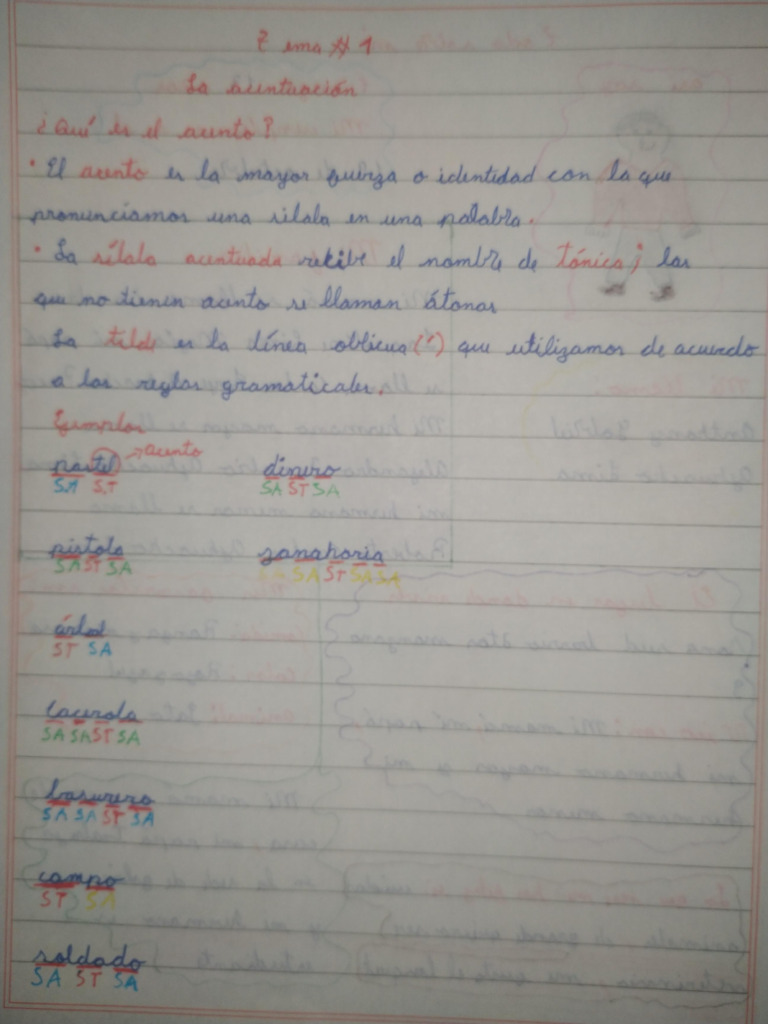 Tema # 1
La acentuación
¿Qué es el acento?
• El acento es la mayor fuerza o identidad con la que
pronunciamos una silala en una palabra.
• La sílala acentuada recibe el nombre de tónica; las
que no tienen acento se llaman átonas
La tilde es la línea oblicua (´) que utilizamos de acuerdo
a las reglas gramaticales.
Ejemplos
pastel → acento dinero
SA ST SA ST SA
pistola zanahoria
SA ST SA SA SA ST SA SA
árbol
ST SA
cacerola
SA SA ST SA
basurero
SA SA ST SA
campo
ST SA
soldado
SA ST SA